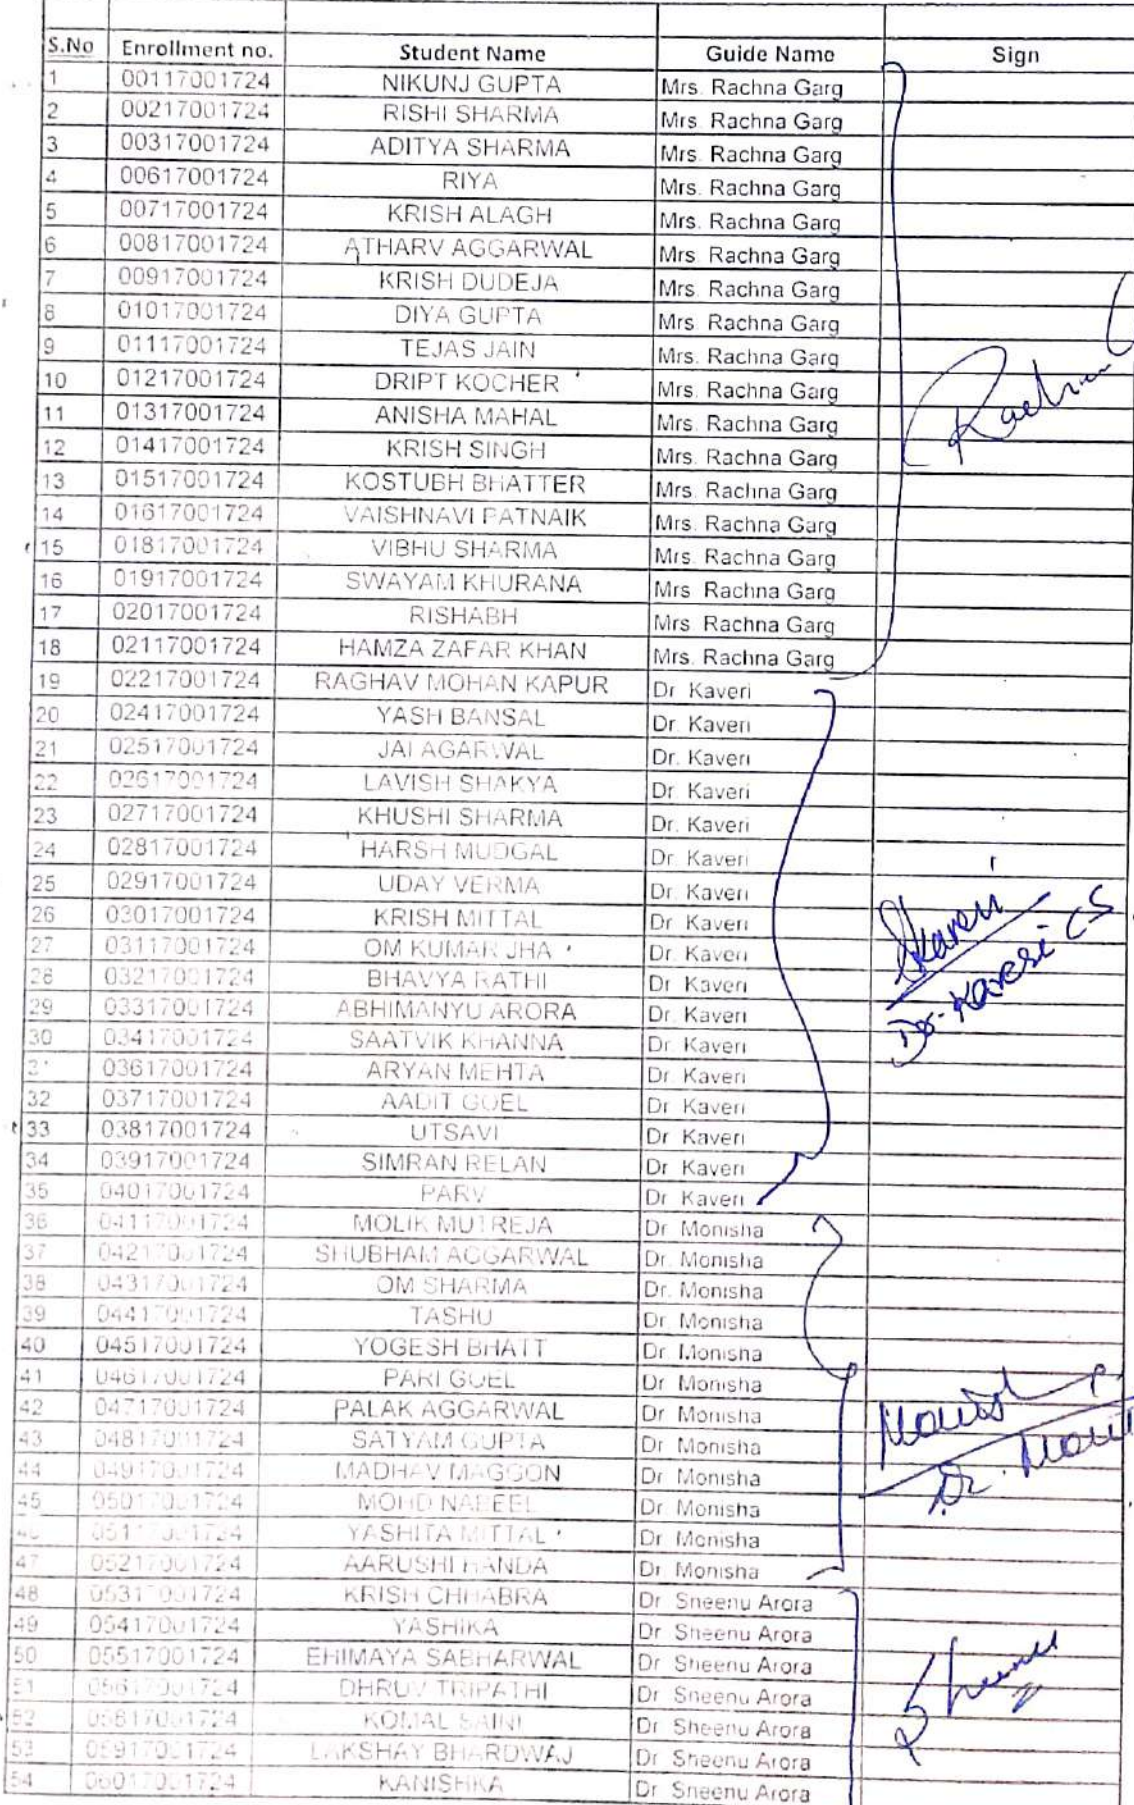 S.No Enrollment no. Student Name Guide Name Sign
1 00117001724 NIKUNJ GUPTA Mrs. Rachna Garg
2 00217001724 RISHI SHARMA Mrs. Rachna Garg
3 00317001724 ADITYA SHARMA Mrs. Rachna Garg
4 00617001724 RIYA Mrs. Rachna Garg
5 00717001724 KRISH ALAGH Mrs. Rachna Garg
6 00817001724 ATHARV AGGARWAL Mrs. Rachna Garg
7 00917001724 KRISH DUDEJA Mrs. Rachna Garg
8 01017001724 DIYA GUPTA Mrs. Rachna Garg
9 01117001724 TEJAS JAIN Mrs. Rachna Garg
10 01217001724 DRIPT KOCHER Mrs. Rachna Garg
11 01317001724 ANISHA MAHAL Mrs. Rachna Garg
12 01417001724 KRISH SINGH Mrs. Rachna Garg
13 01517001724 KOSTUBH BHATTER Mrs. Rachna Garg
14 01617001724 VAISHNAVI PATNAIK Mrs. Rachna Garg
15 01817001724 VIBHU SHARMA Mrs. Rachna Garg
16 01917001724 SWAYAM KHURANA Mrs Rachna Garg
17 02017001724 RISHABH Mrs Rachna Garg
18 02117001724 HAMZA ZAFAR KHAN Mrs. Rachna Garg
19 02217001724 RAGHAV MOHAN KAPUR Dr Kaveri
20 02417001724 YASH BANSAL Dr. Kaveri
21 02517001724 JAI AGARWAL Dr. Kaveri
22 02617001724 LAVISH SHAKYA Dr Kaveri
23 02717001724 KHUSHI SHARMA Dr. Kaveri
24 02817001724 HARSH MUDGAL Dr. Kaveri
25 02917001724 UDAY VERMA Dr. Kaveri
26 03017001724 KRISH MITTAL Dr Kaveri
Kaveri
27 03117001724 OM KUMAR JHA Dr. Kaveri
28 03217001724 BHAVYA RATHI Dr Kaveri
29 03317001724 ABHIMANYU ARORA Dr. Kaveri
Dr. Kaveri CS
30 03417001724 SAATVIK KHANNA Dr. Kaveri
03617001724 ARYAN MEHTA Dr Kaveri
32 03717001724 AADIT GOEL Dr Kaveri
33 03817001724 UTSAVI Dr Kaveri
34 03917001724 SIMRAN RELAN Dr Kaveri
35 04017001724 PARV Dr Kaveri
36 04117001724 MOLIK MUTREJA Dr Monisha
37 04217001724 SHUBHAM AGGARWAL Dr. Monisha
38 04317001724 OM SHARMA Dr. Monisha
39 04417001724 TASHU Dr. Monisha
40 04517001724 YOGESH BHATT Dr Monisha
41 04617001724 PARI GOEL Dr Monisha
42 04717001724 PALAK AGGARWAL Dr Monisha
43 04817001724 SATYAM GUPTA Dr Monisha
44 04917001724 MADHAV MAGGON Dr Monisha
45 05017001724 MOHD NABEEL Dr. Monisha
05117001724 YASHITA MITTAL Dr Monisha
47 05217001724 AARUSHI HANDA Dr Monisha
48 05317001724 KRISH CHHABRA Dr Sheenu Arora
49 05417001724 YASHIKA Dr Sheenu Arora
50 05517001724 EHIMAYA SABHARWAL Dr Sheenu Arora
51 05617001724 DHRUV TRIPATHI Dr Sheenu Arora
52 05817001724 KOMAL SAINI Dr Sheenu Arora
53 05917001724 LAKSHAY BHARDWAJ Dr Sheenu Arora
54 06017001724 KANISHKA Dr Sheenu Arora